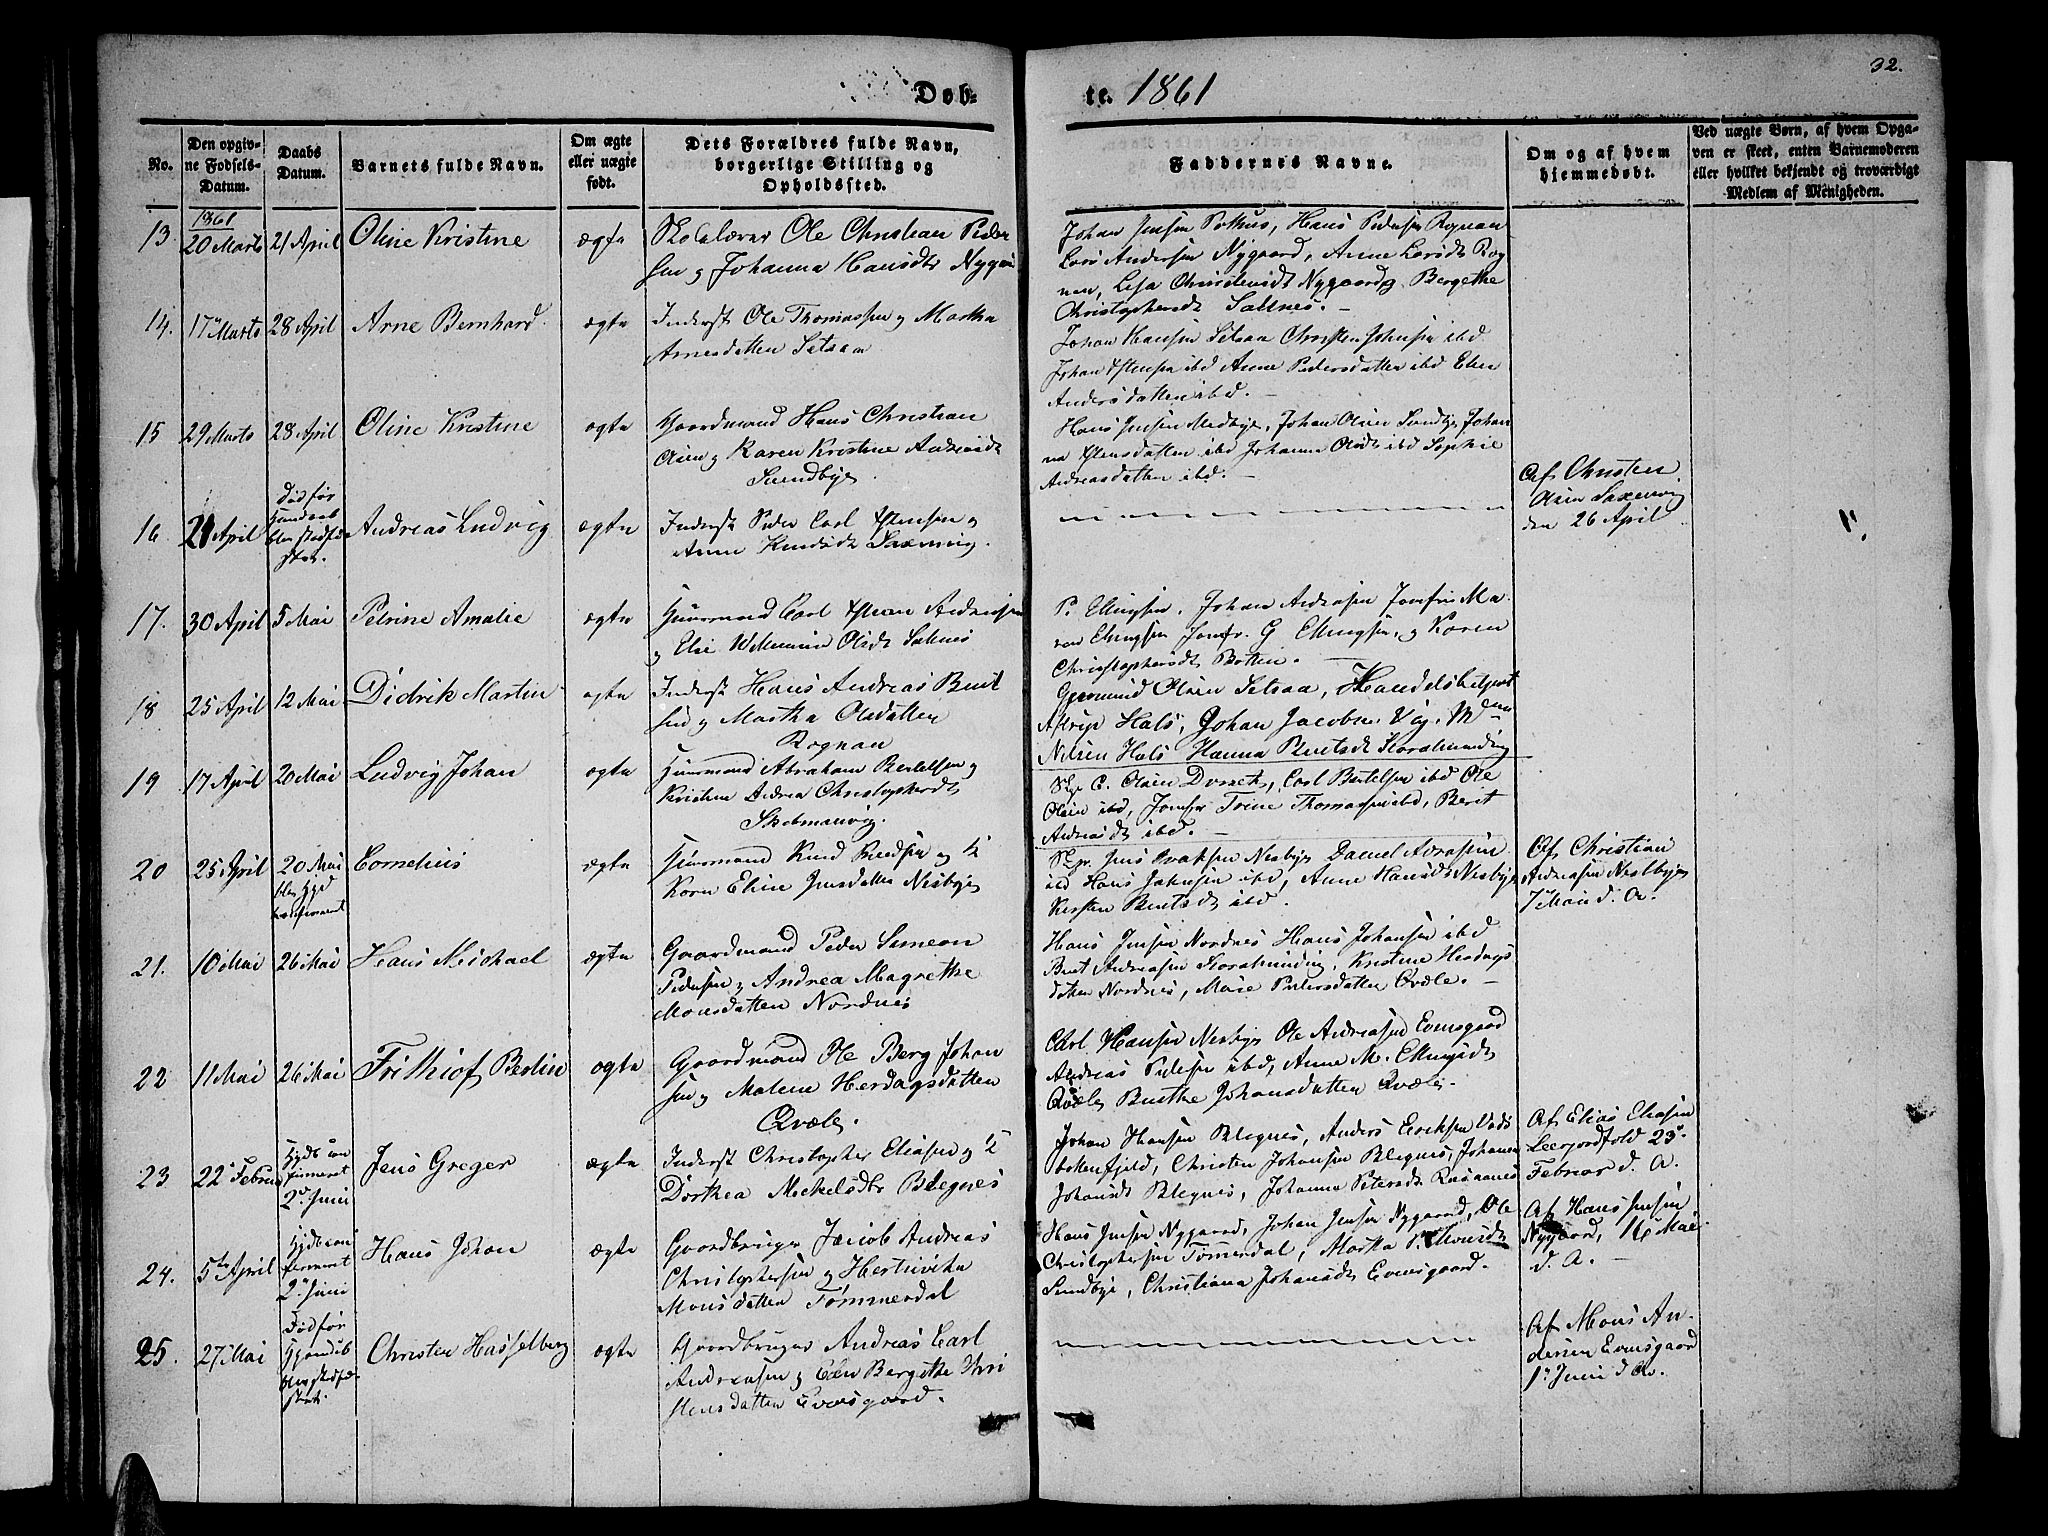 32.
Døb-
te. 1861
No.
Den opgiv-
ne Fødsels-
Datum.
Daabs
Datum.
Barnets fulde Navn.
Om ægte
eller uægte
født.
Dets Forældres fulde Navn,
borgerlige Stilling og
Opholdssted.
Faddernes Navne.
Om og af hvem
hjemmedøbt.
Ved uægte Børn, af hvem Opga-
ven er skeet, enten Barnemoderen
eller hvilket bekjendt og troværdigt
Medlem af Menigheden.
1861
13 20 Marts 21 April Oline Kristine ægte
Skolelærer Ole Christian Peder
sen og Johanna Hansdtr
Johan Jensen Pothus, Hans Pedersen Rognan
Lars Andersen Nygaard, Anne Larsdt Rog
nan, Nygaard og Bergethe
Christophersdt Saltnes.
14. 17 Marts 28 April Arne Bernhard ægte
Inderst Ole Thomassen og Martha
Arnesdatter Setsaa
Johan Hansen Setsaa Christen Johnsen ibd
Johan Estensen ibd Anne Pedersdatter ibd Ellen
Andersdatter ibd.
15 29 Marts 28 April Oline Kristine ægte
Gaardmand Hans Christian
Olsen og Karen Kristine
Sundbye
Hans Jensen Medbye, Johan Olsen Sundby Johan
na Estensdatter ibd Johanna Olsdt ibd Sophie
Andreasdatter ibd.
16 21 April
død før
blev stadfæ
stet.
Andreas Ludvig ægte
Inderst Peder Carl Estensen og
Anne Knudsdt Saxenvig.
Af Christen
Olsen Saxenvig
den 26 April
17. 30 April 5 Mai Petrine Amalie ægte
Huusmand Carl Andreasen
og Else Willumine Olsdt Saltnes
P. Ellingsen, Johan Andersen Jomfrue Ma
ren Ellingsen Jomfr. G Ellingsen, og Karen
Christophersdt Botten.
18 25 April 12 Mai Didrik Martin ægte
Inderst Hans Andreas Bent
sen og Martha Olsdatter
Rognan
Gjermund Olsen Setsaa, Handelsbetjent
Astrup Hals, Johan Jacobsen Vig,
Nilsen Hals Hanna Bentsdt
19 17 April 20 Mai Ludvig Johan ægte
Huusmand Abraham Bertelsen og
Kristine Andrea Christophersdt
Skebmanvig.
C. Olsen Carl Bertelsen ibd Ole
Olsen ibd, Jomfr Trine Thomassen ibd, Berit
Andreasdt ibd.
20 25 April 20 Mai
blev Hjd
konfirmeret
Cornelius ægte
Huusmand Knud Knudsen og
Karn Eline Jensdatter Nesbye
Jens Nesbye Daniel
ibd Hans Johnsen ibd, Anne Hansdt Nesbye
Kirsten Bentsdt ibd.
Af Christian
Andreasen Nestbye
7 Mai d. A.
21. 10 Mai 26 Mai Hans Michael ægte
Gaardmand Peder Simeon
Pedersen og Andrea Magrethe
Monsdatter Nordnes
Hans Jensen Nordnes Hans Johansen ibd
Bent Andreasen Kristine Herdags
datter Nordnes, Marie Pedersdatter Qvæle.
22 11 Mai 26 Mai Frithiof Berlin ægte
Gaardmand Ole Berg Johan
sen og Malene Herdagsdatter
Qvæle.
Carl Hansen Nesbye Ole Andreasen Evensgaard
Andreas Pedersen ibd, Anne M. Ellingsdt
Qvæle Berthe Johansdatter Qvæle.
23 22 Februar
Hjdb con
firmeret
2 Juni
Jens Greger ægte
Inderst Christopher Eliasen og
Dorthea Mickelsdtr Blegnes
Johan Hansen Blegnes, Anders Eriksen Vads
bottenfjeld, Christen Johansen Blegnes, Johanna
Johansdt Blegnes, Johanna Petersdt
Af Elias Eliasen
23
Februar d. A.
24. 5 April
Hjdb con
firmeret
2 Juni
Hans Johan ægte
Gaardbruger Jacob Andreas
Christophersen og
Monsdatter Tømmerdal
Hans Jensen Nygaard, Johan Jensen Nygaard, Ole
Christophersen Tømerdal, Martha P. Monsdt
Sundbye, Christiana Johansdt Evensgaard.
Af Hans Jensen
Nygaard, 16 Mai
d. A.
25. 27 Mai
Død før
blev stadfæ
stet.
Christen Hasselberg ægte
Gaardbruger Andreas Carl
Andreasen og Ellen Bergethe Chri
stensdatter Evensgaard.
Af Mons An-
dersen Evensgaard
1 Juni d A.